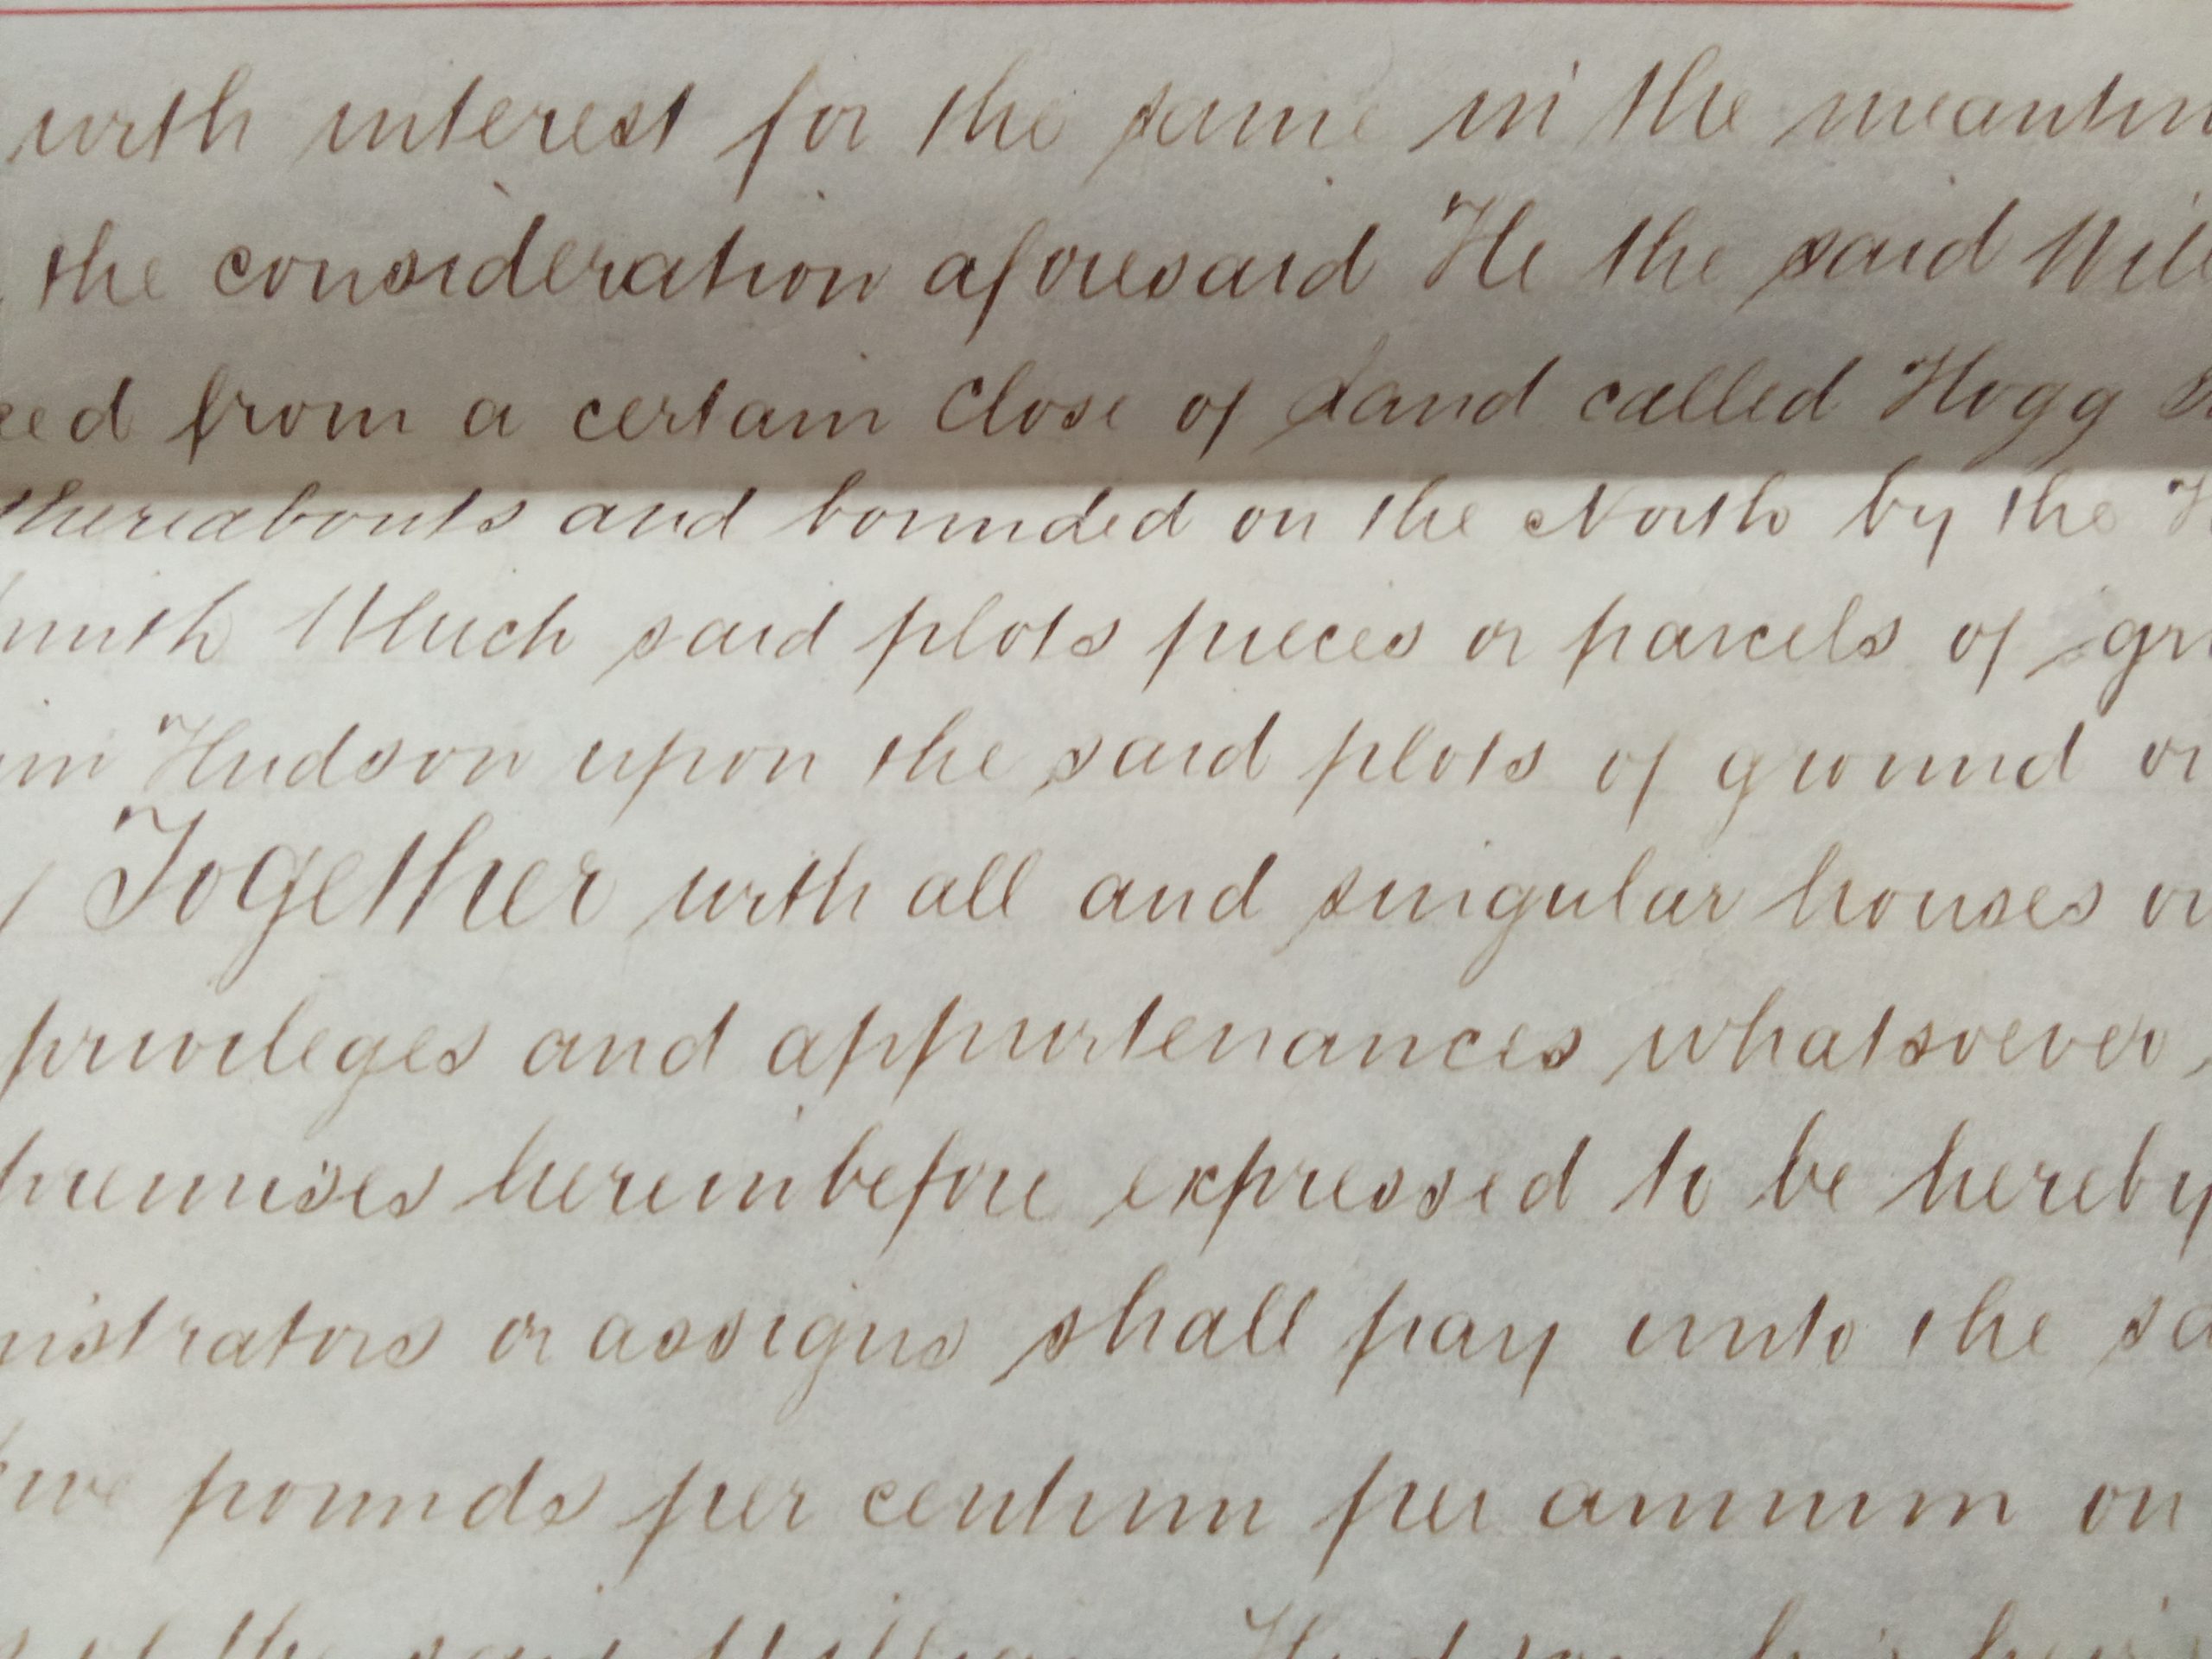 with interest for the same in the meantim
the consideration aforesaid He the said Will
ced from a certain Close of Land called Hogg
thereabouts and bounded on the North by the
Smith Which said plots pieces or parcels of gr
am Hudson upon the said plots of ground or
Together with all and singular houses or
privileges and appurtenances whatsoever
premises hereinbefore expressed to be hereby
nistrators or assigns shall pay unto the sa
ive pounds per centum per annum on
of the said William Hudson his heirs